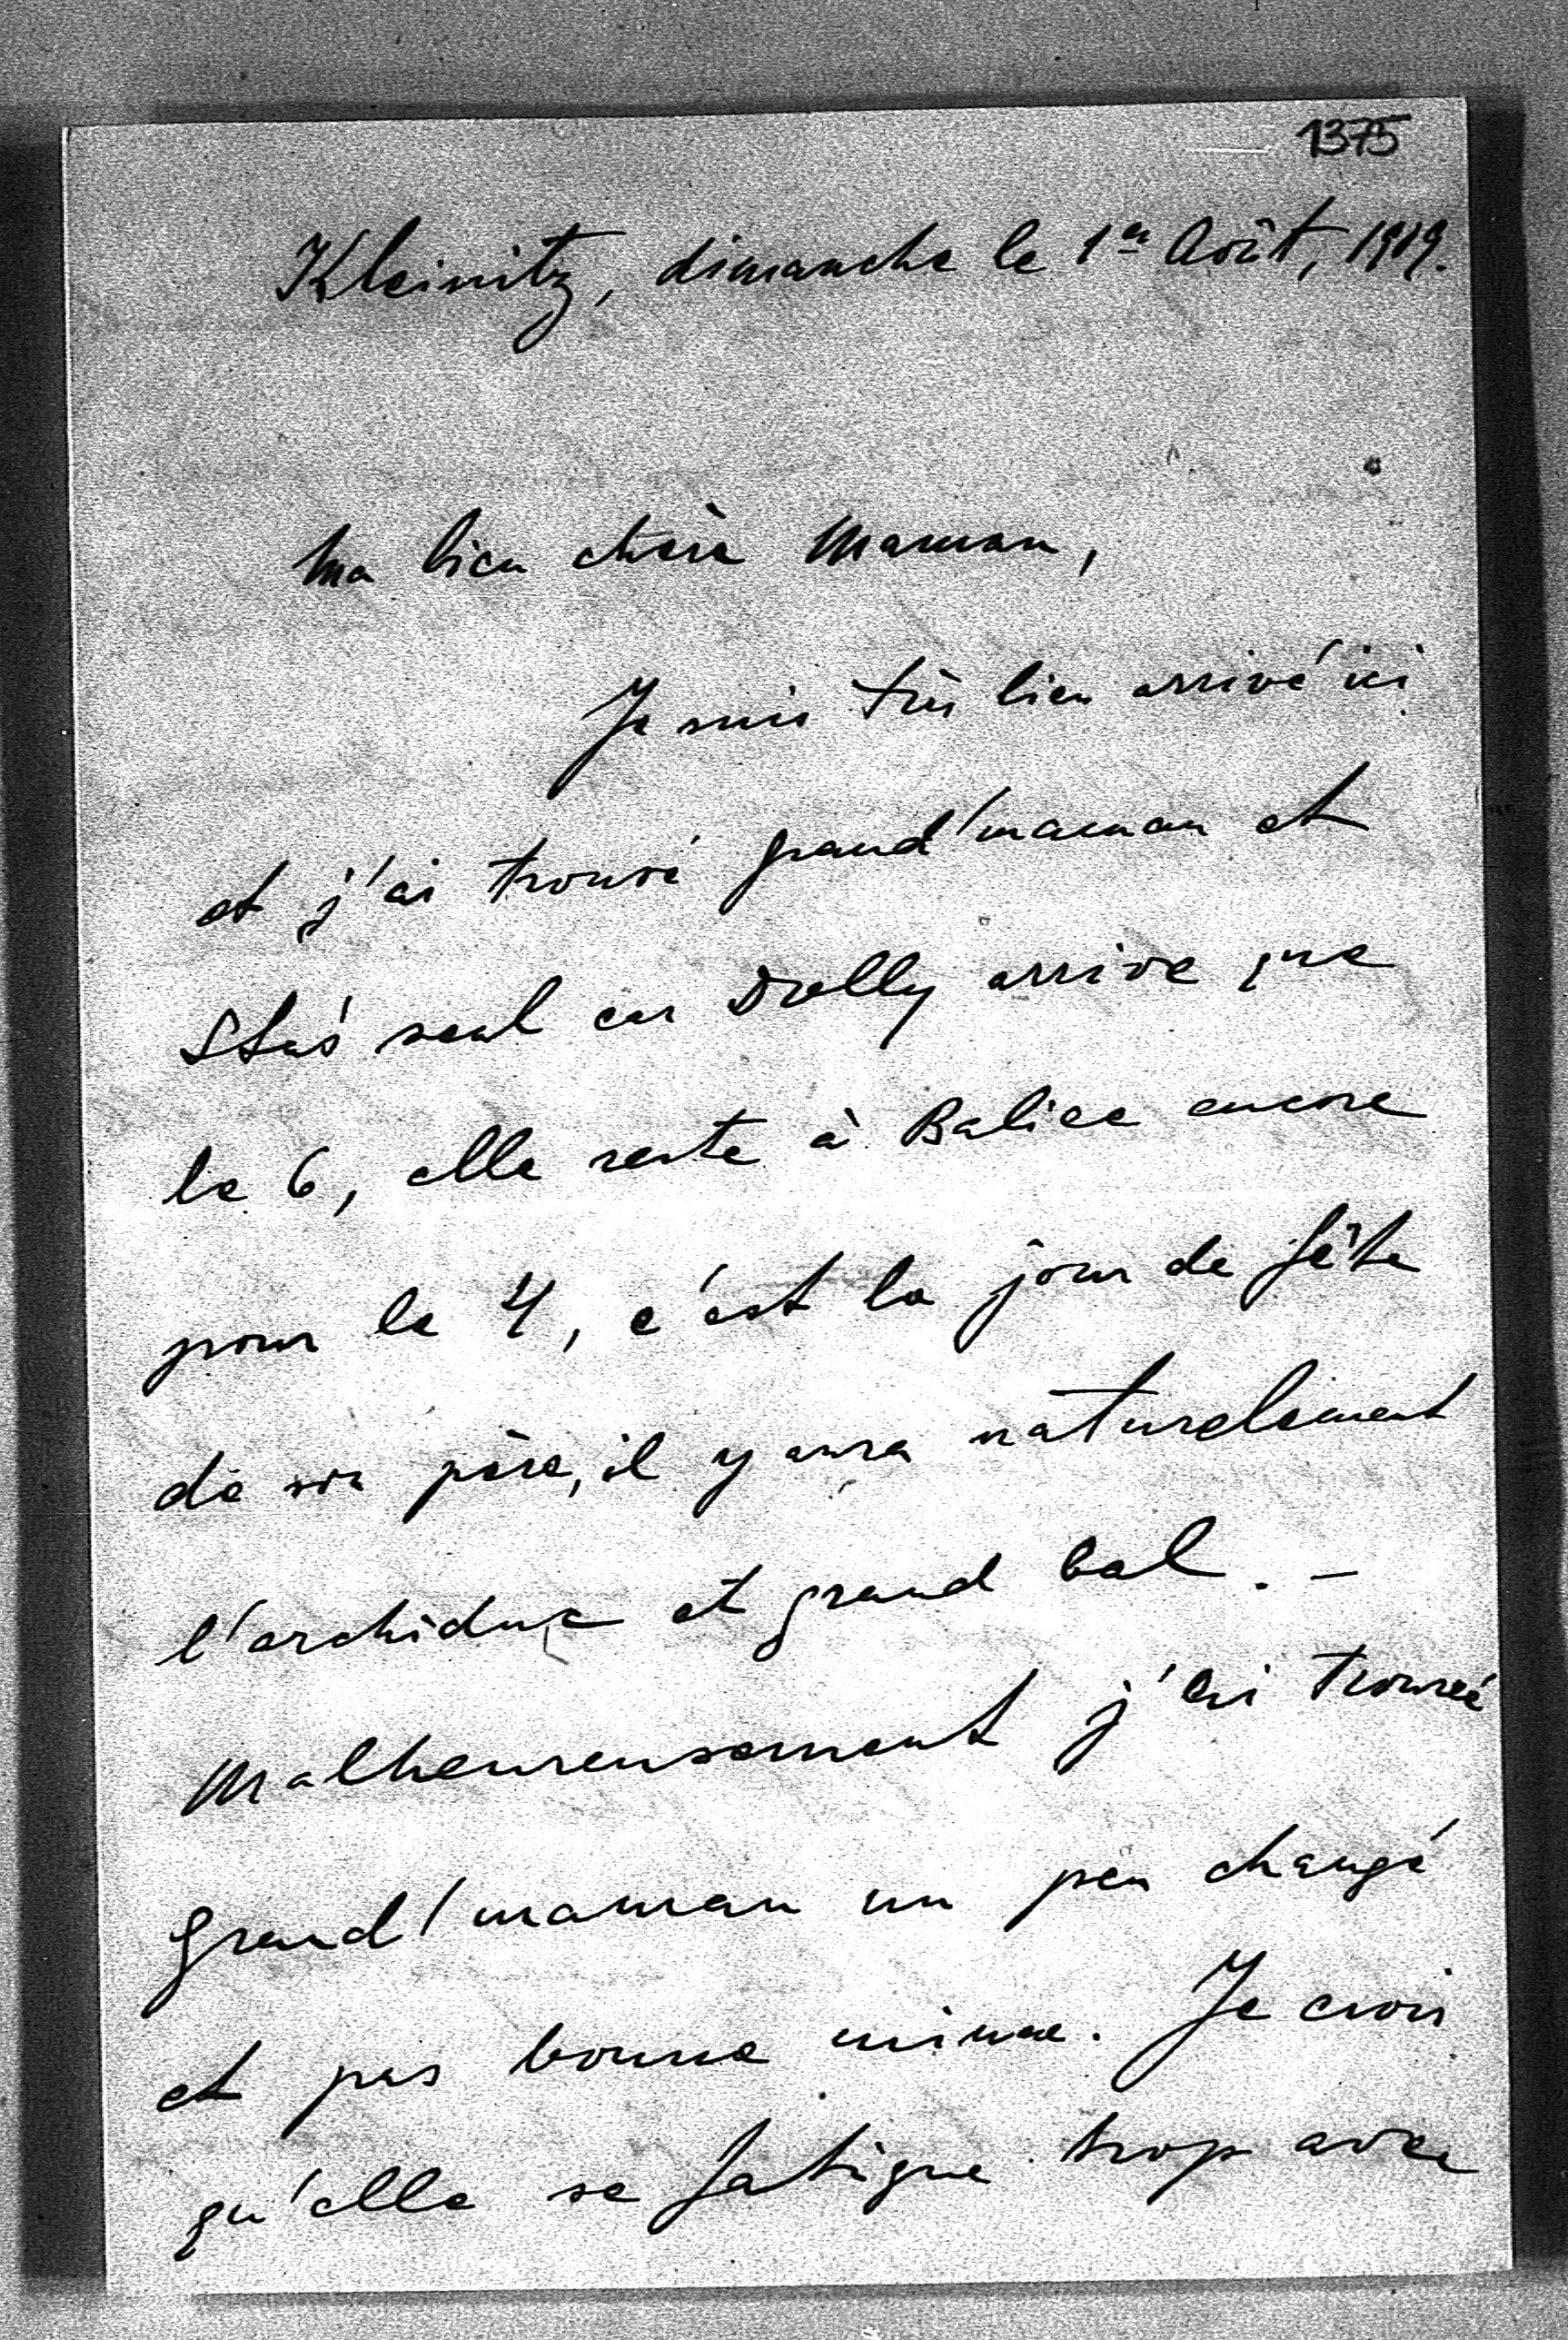 1375
Kleinitz, dimanche le 1er Août, 1909.
Ma bien chère Maman,
Je suis très bien arrivé ici
et j'ai trouvé grand'maman et
Staś seul car Dolly arrive que
le 6, elle reste à Balice encore
pour le 4, c'est la jour de fête
de son père, il y aura naturelement
l'archiduc et grand bal. –
Malheureusement j'ai trouvé
grand'maman un peu changé
et pas bonne mine. Je crois
qu'elle se fatigue trop avec